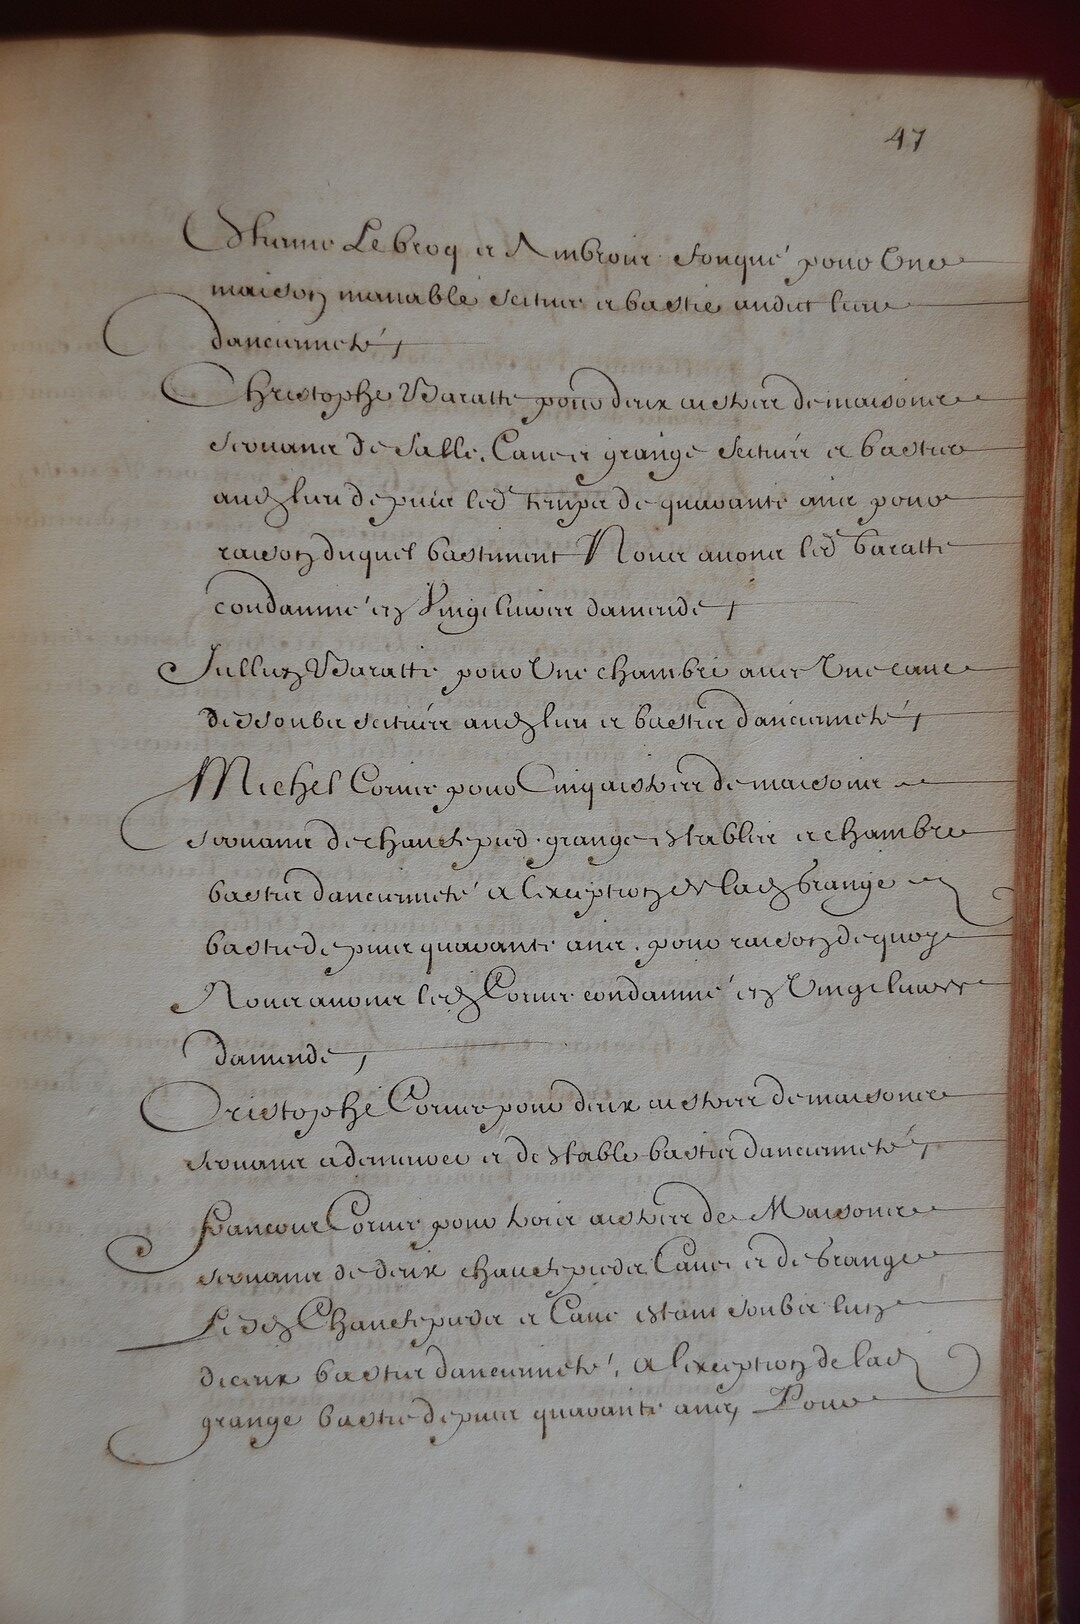 47
Estienne Le broq et Ambroise fouqué pour Une
maison manable scituée et bastie audict lieu
d'ancienneté,
Christophe Baratte pour deux aistres de maisons
servans de salle, Cave et grange scitués et basties
aud lieu depuis led temps de quarante ans pour
raison duquel bastiment Nous avons led baratte
condamné en Vingt livres damende,
Jullien Baratte pour Une chambre avec Une cave
dessoubz scituée aud lieu et basties dancienneté,
Michel Cornet pour Cinq aistres de maisons
servans de chauffepied grange establies et chambre
basties dancienneté a lexception de lad Grange
bastie depuis quarante ans, pour raison de quoy
Nous avons led Cornet condamné en Vingt livres
damende,
Cristophe Cornet pour deux aistres de maisons
servans a demeure et destable basties dancienneté,
francois Cornet pour trois aistres de Maisons
servans de deux chauffepieds Cave et de Grange
Lesd Chauffepieds et Cave estant soubz lun
diceux basties dancienneté, a lexception de lad
grange bastie depuis quarante ans, Pour